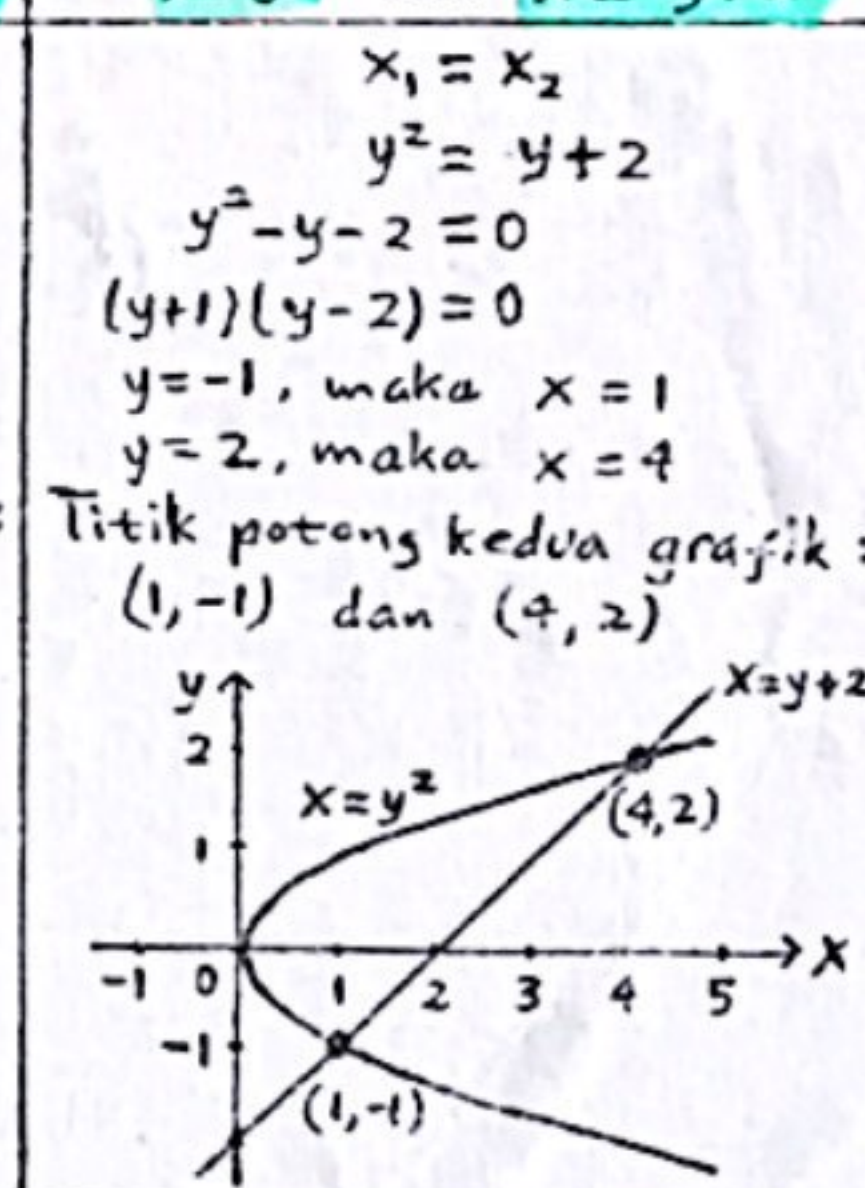 x₁ = x₂
y² = y+2
y² - y - 2 = 0
(y+1)(y-2) = 0
y = -1, maka x = 1
y = 2, maka x = 4
Titik potong kedua grafik :
(1,-1) dan (4,2)
y
x=y+2
2
x=y²
(4,2)
1
-1 0 1 2 3 4 5 x
-1
(1,-1)